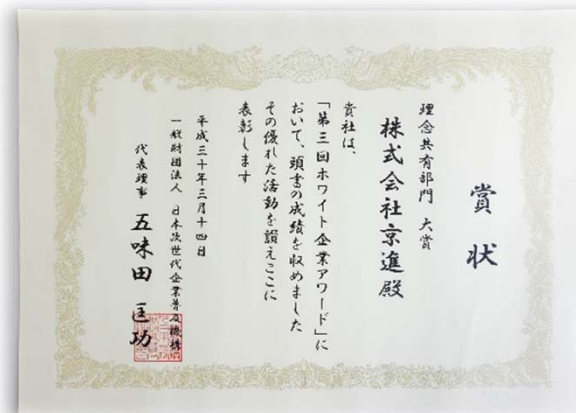 賞状
理念共有部門 大賞
株式会社京進殿
貴社は、
「第三回ホワイト企業アワード」に
おいて、頭書の成績を収めました
その優れた活動を讃えここに
表彰します
平成三十年三月十四日
一般財団法人 日本次世代企業普及機構
代表理事 五味田 匡功